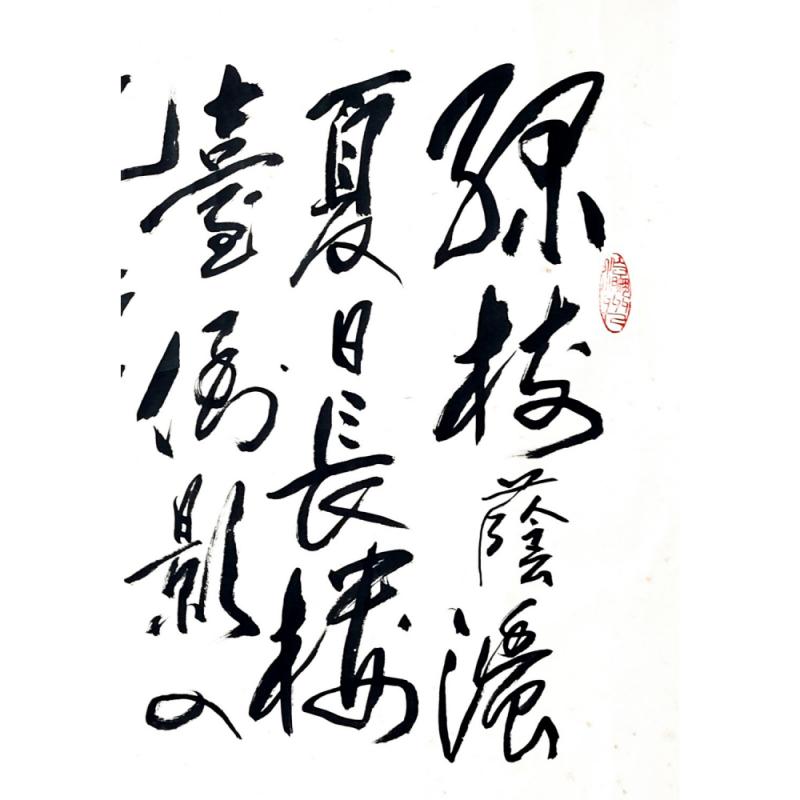 綠樹蔭濃
夏日長樓
臺倒影入